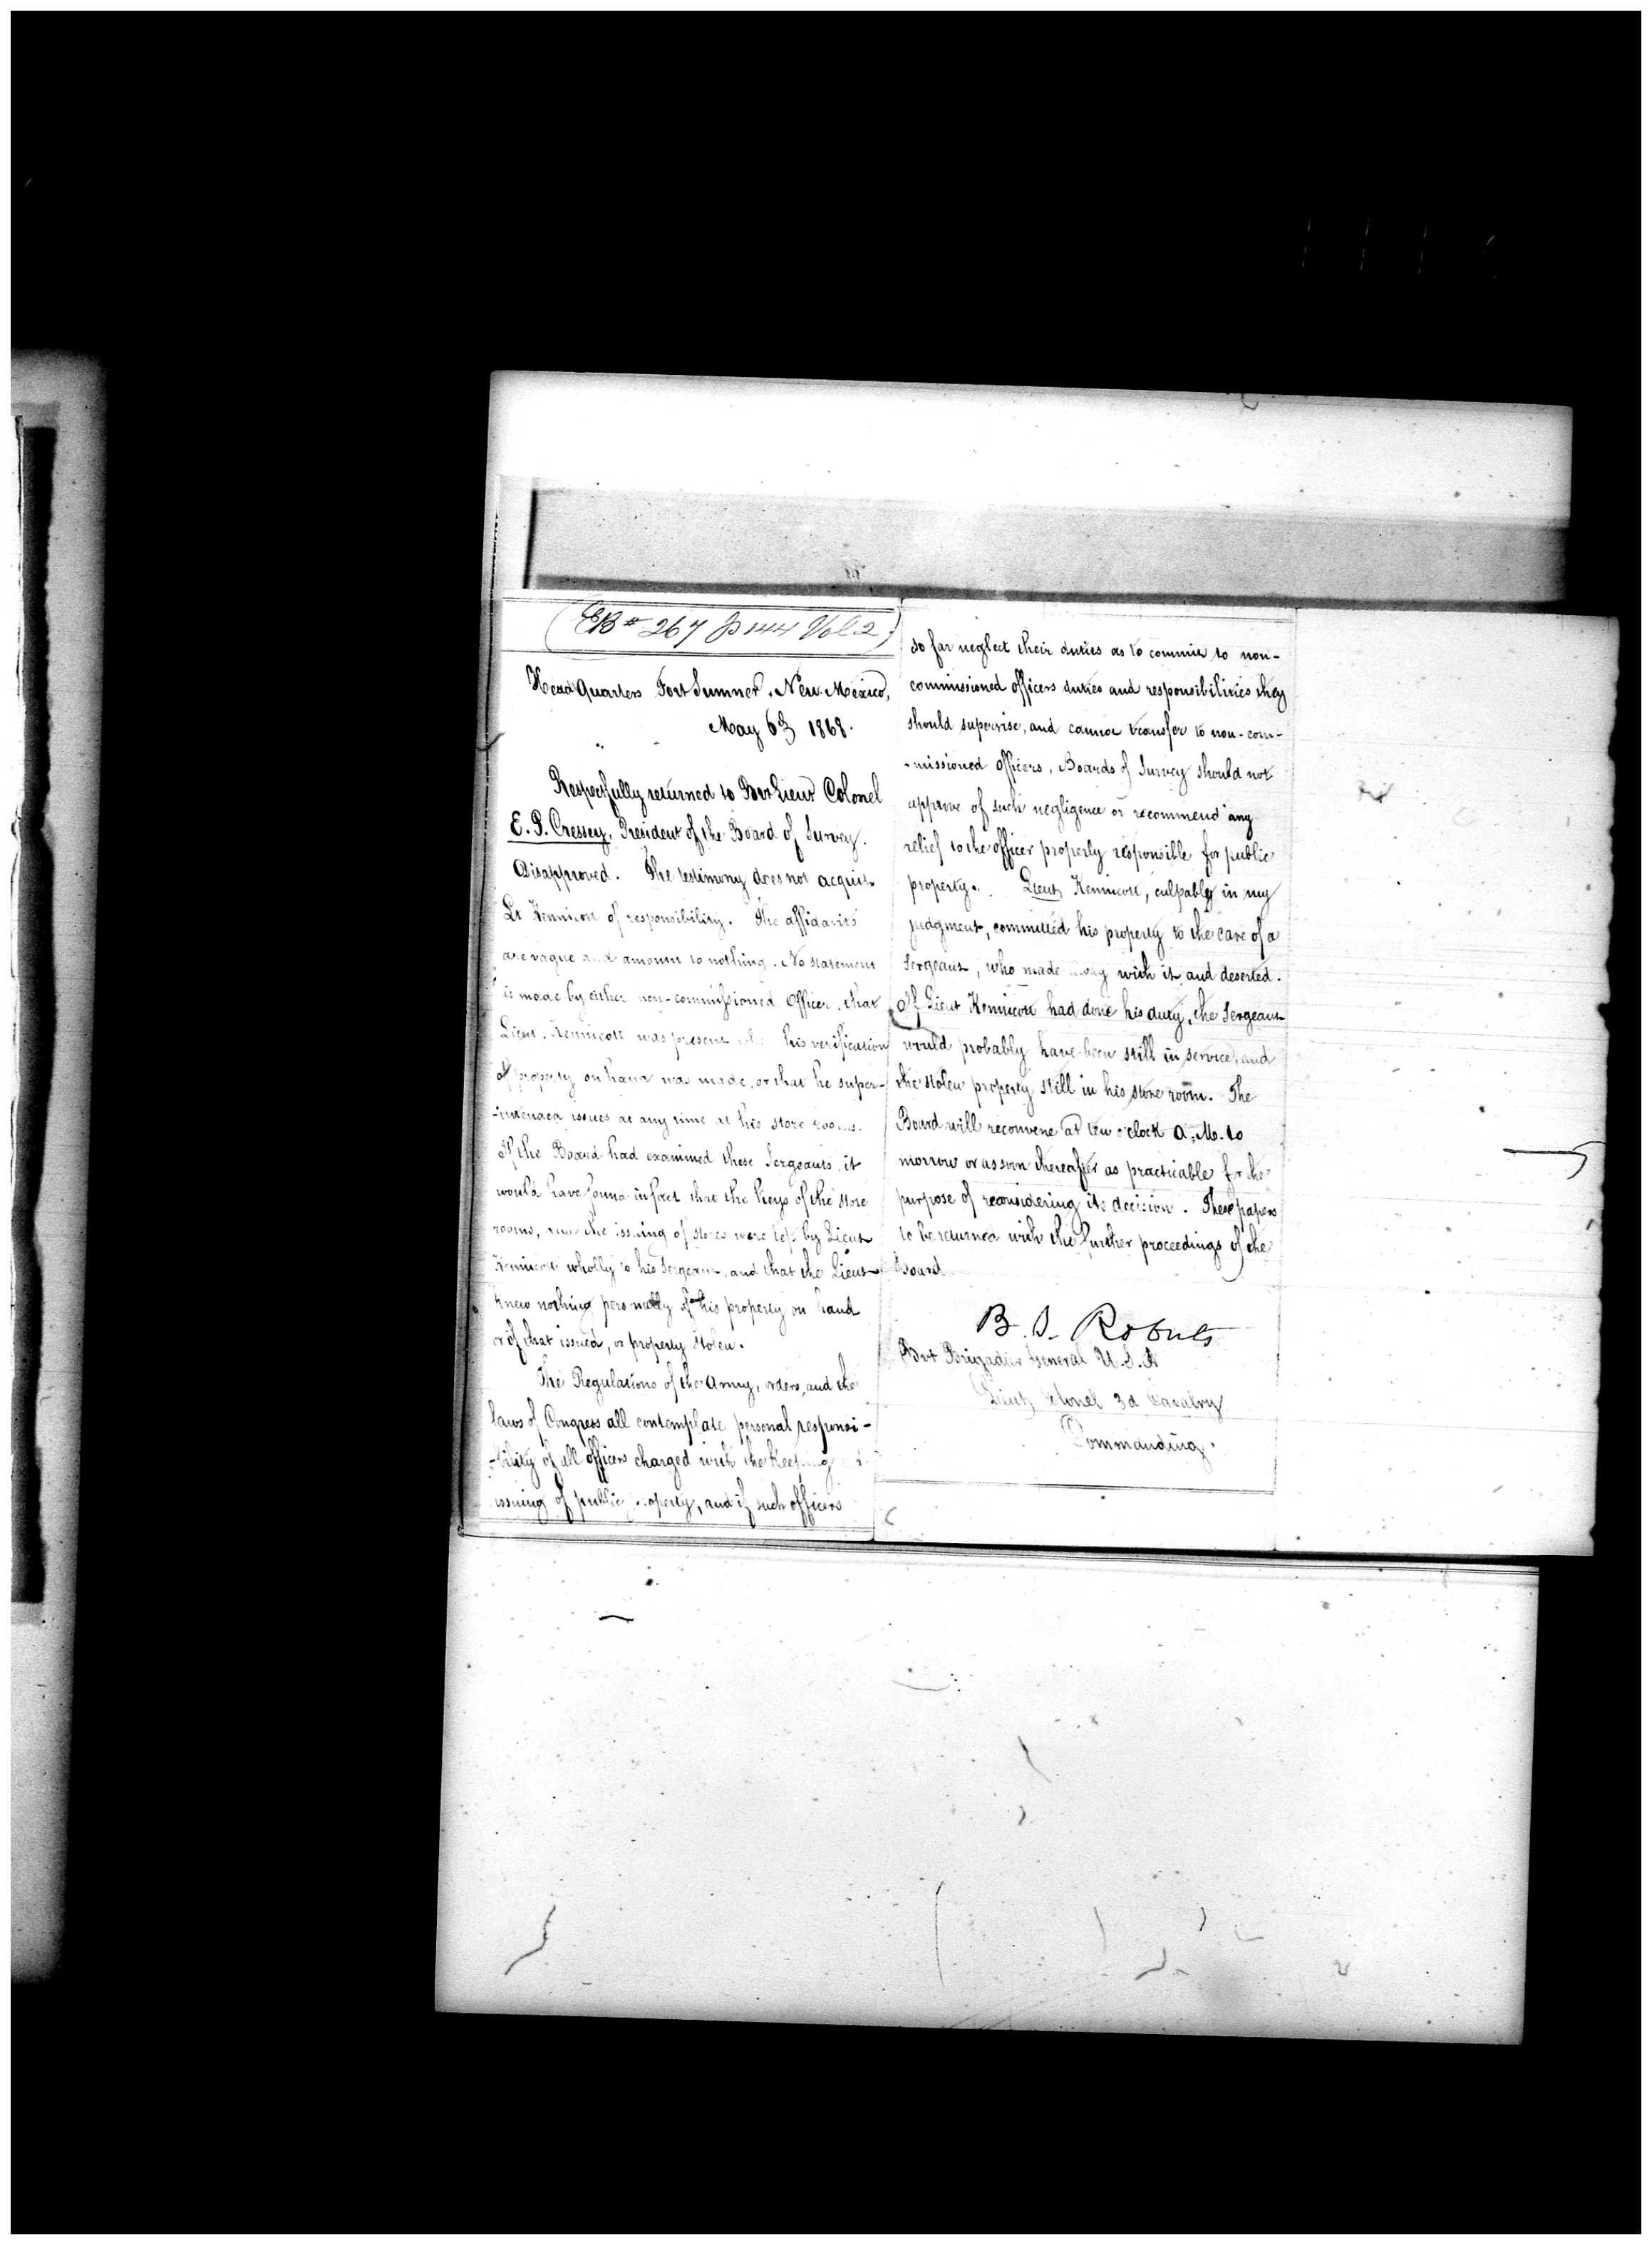 EB # 267 p 144 Vol. 2
Head Quarters Fort Sumner, New Mexico,
May 6th 1868.
Respectfully returned to Bvt Lieut Colonel
E. P. Cressey, President of the Board of Survey.
Disapproved. The testimony does not acquit
Lt Kennicott of responsibility. The affidavits
are vague and amount to nothing. No statement
is made by either non-commissioned Officer, that
Lieut. Kennicott was present his verification
of property on hand was made, or that he super-
-intended issues at any time at his store rooms.
If the Board had examined these Sergeants, it
would have found in fact that the keys of the store
rooms, and the issuing of stores were left by Lieut
Kennicott wholly to his Sergeant, and that the Lieut
knew nothing personally of his property on hand
or of that issued, or property stolen.
The Regulations of the Army, orders, and the
laws of Congress all contemplate personal responsi-
-bility of all officers charged with the keeping
issuing of public property, and if such officers
so far neglect their duties as to commit to non-
commissioned officers duties and responsibilities they
should supervise, and cannot transfer to non-com-
-missioned officers, Boards of Survey should not
approve of such negligence or recommend any
relief to the officer properly responsible for public
property. Lieut Kennicott, culpably in my
judgment, committed his property to the care of a
Sergeant, who made away with it and deserted.
If Lieut Kennicott had done his duty, the Sergeant
would probably have been still in service, and
the stolen property still in his store room. The
Board will reconvene at ten o'clock A.M. to
morrow or as soon thereafter as practicable for the
purpose of reconsidering its decision. These papers
to be returned with the further proceedings of the
Board
B. S. Roberts
Bvt Brigadier General U.S.A
Lieut Colonel 3d Cavalry
Commanding.